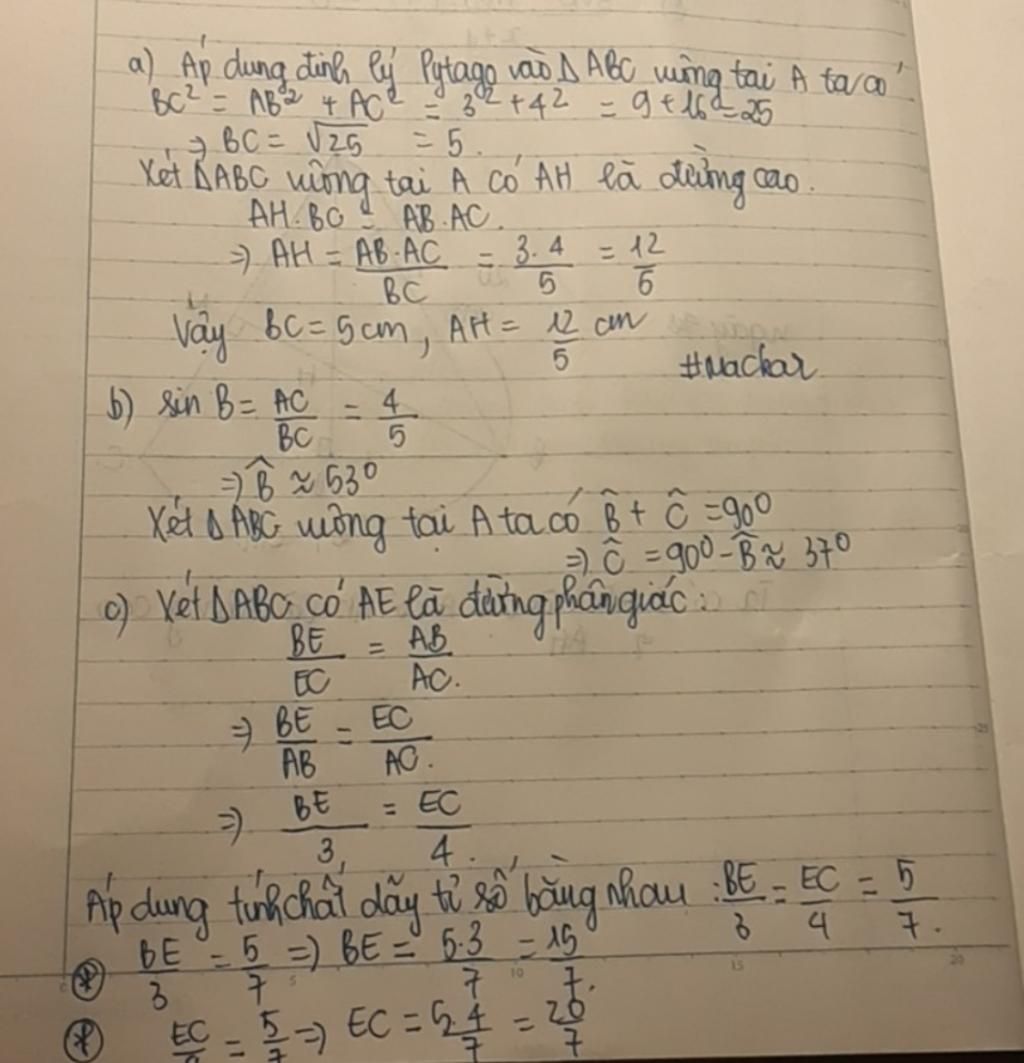 a) Áp dụng định lý Pytago vào Δ ABC vuông tại A ta có
BC² = AB² + AC² = 3² + 4² = 9 + 16 = 25
⇒ BC = √25 = 5.
Xét ΔABC vuông tại A có AH là đường cao.
AH.BC = AB.AC.
⇒ AH = AB.AC/BC = 3.4/5 = 12/5
Vậy BC = 5cm, AH = 12/5 cm
#Nachar
b) sin B = AC/BC = 4/5
⇒ B̂ ≈ 53⁰
Xét Δ ABC vuông tại A ta có B̂ + Ĉ = 90⁰
⇒ Ĉ = 90⁰ - B̂ ≈ 37⁰
c) Xét ΔABC có AE là đường phân giác:
BE/EC = AB/AC.
⇒ BE/AB = EC/AC.
⇒ BE/3 = EC/4.
Áp dụng tính chất dãy tỉ số bằng nhau : BE/3 = EC/4 = 5/7.
⊛ BE/3 = 5/7 ⇒ BE = 5.3/7 = 15/7.
⊛ EC/ = 5/7 ⇒ EC = 5.4/7 = 20/7